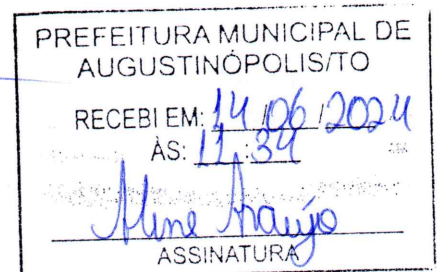 PREFEITURA MUNICIPAL DE
AUGUSTINÓPOLIS/TO
RECEBI EM: 14 / 06 / 2024
ÀS: 11 : 34
Aline Araújo
ASSINATURA